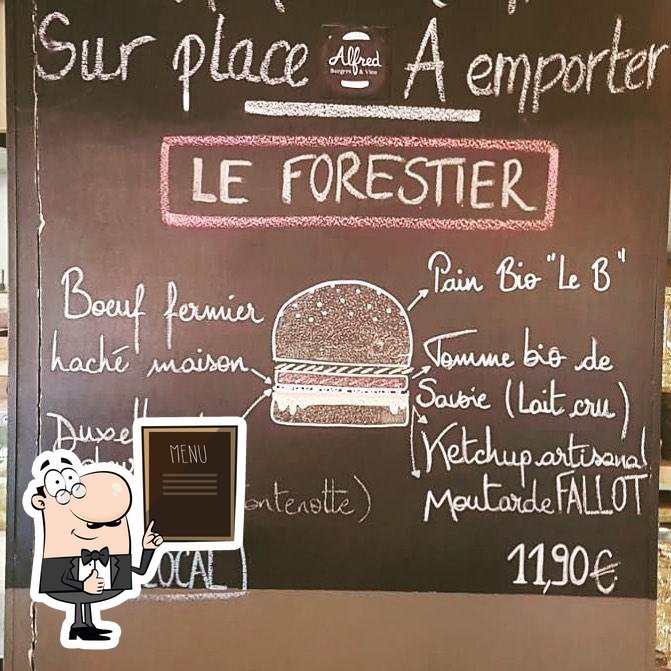 Sur place
Alfred
Burgers & Vins
A emporter
LE FORESTIER
Boeuf fermier
haché maison
Pain Bio "Le B"
Tomme bio de
Savoie (Lait cru)
Ketchup artisanal
Moutarde FALLOT
MENU
LOCAL
11,90€